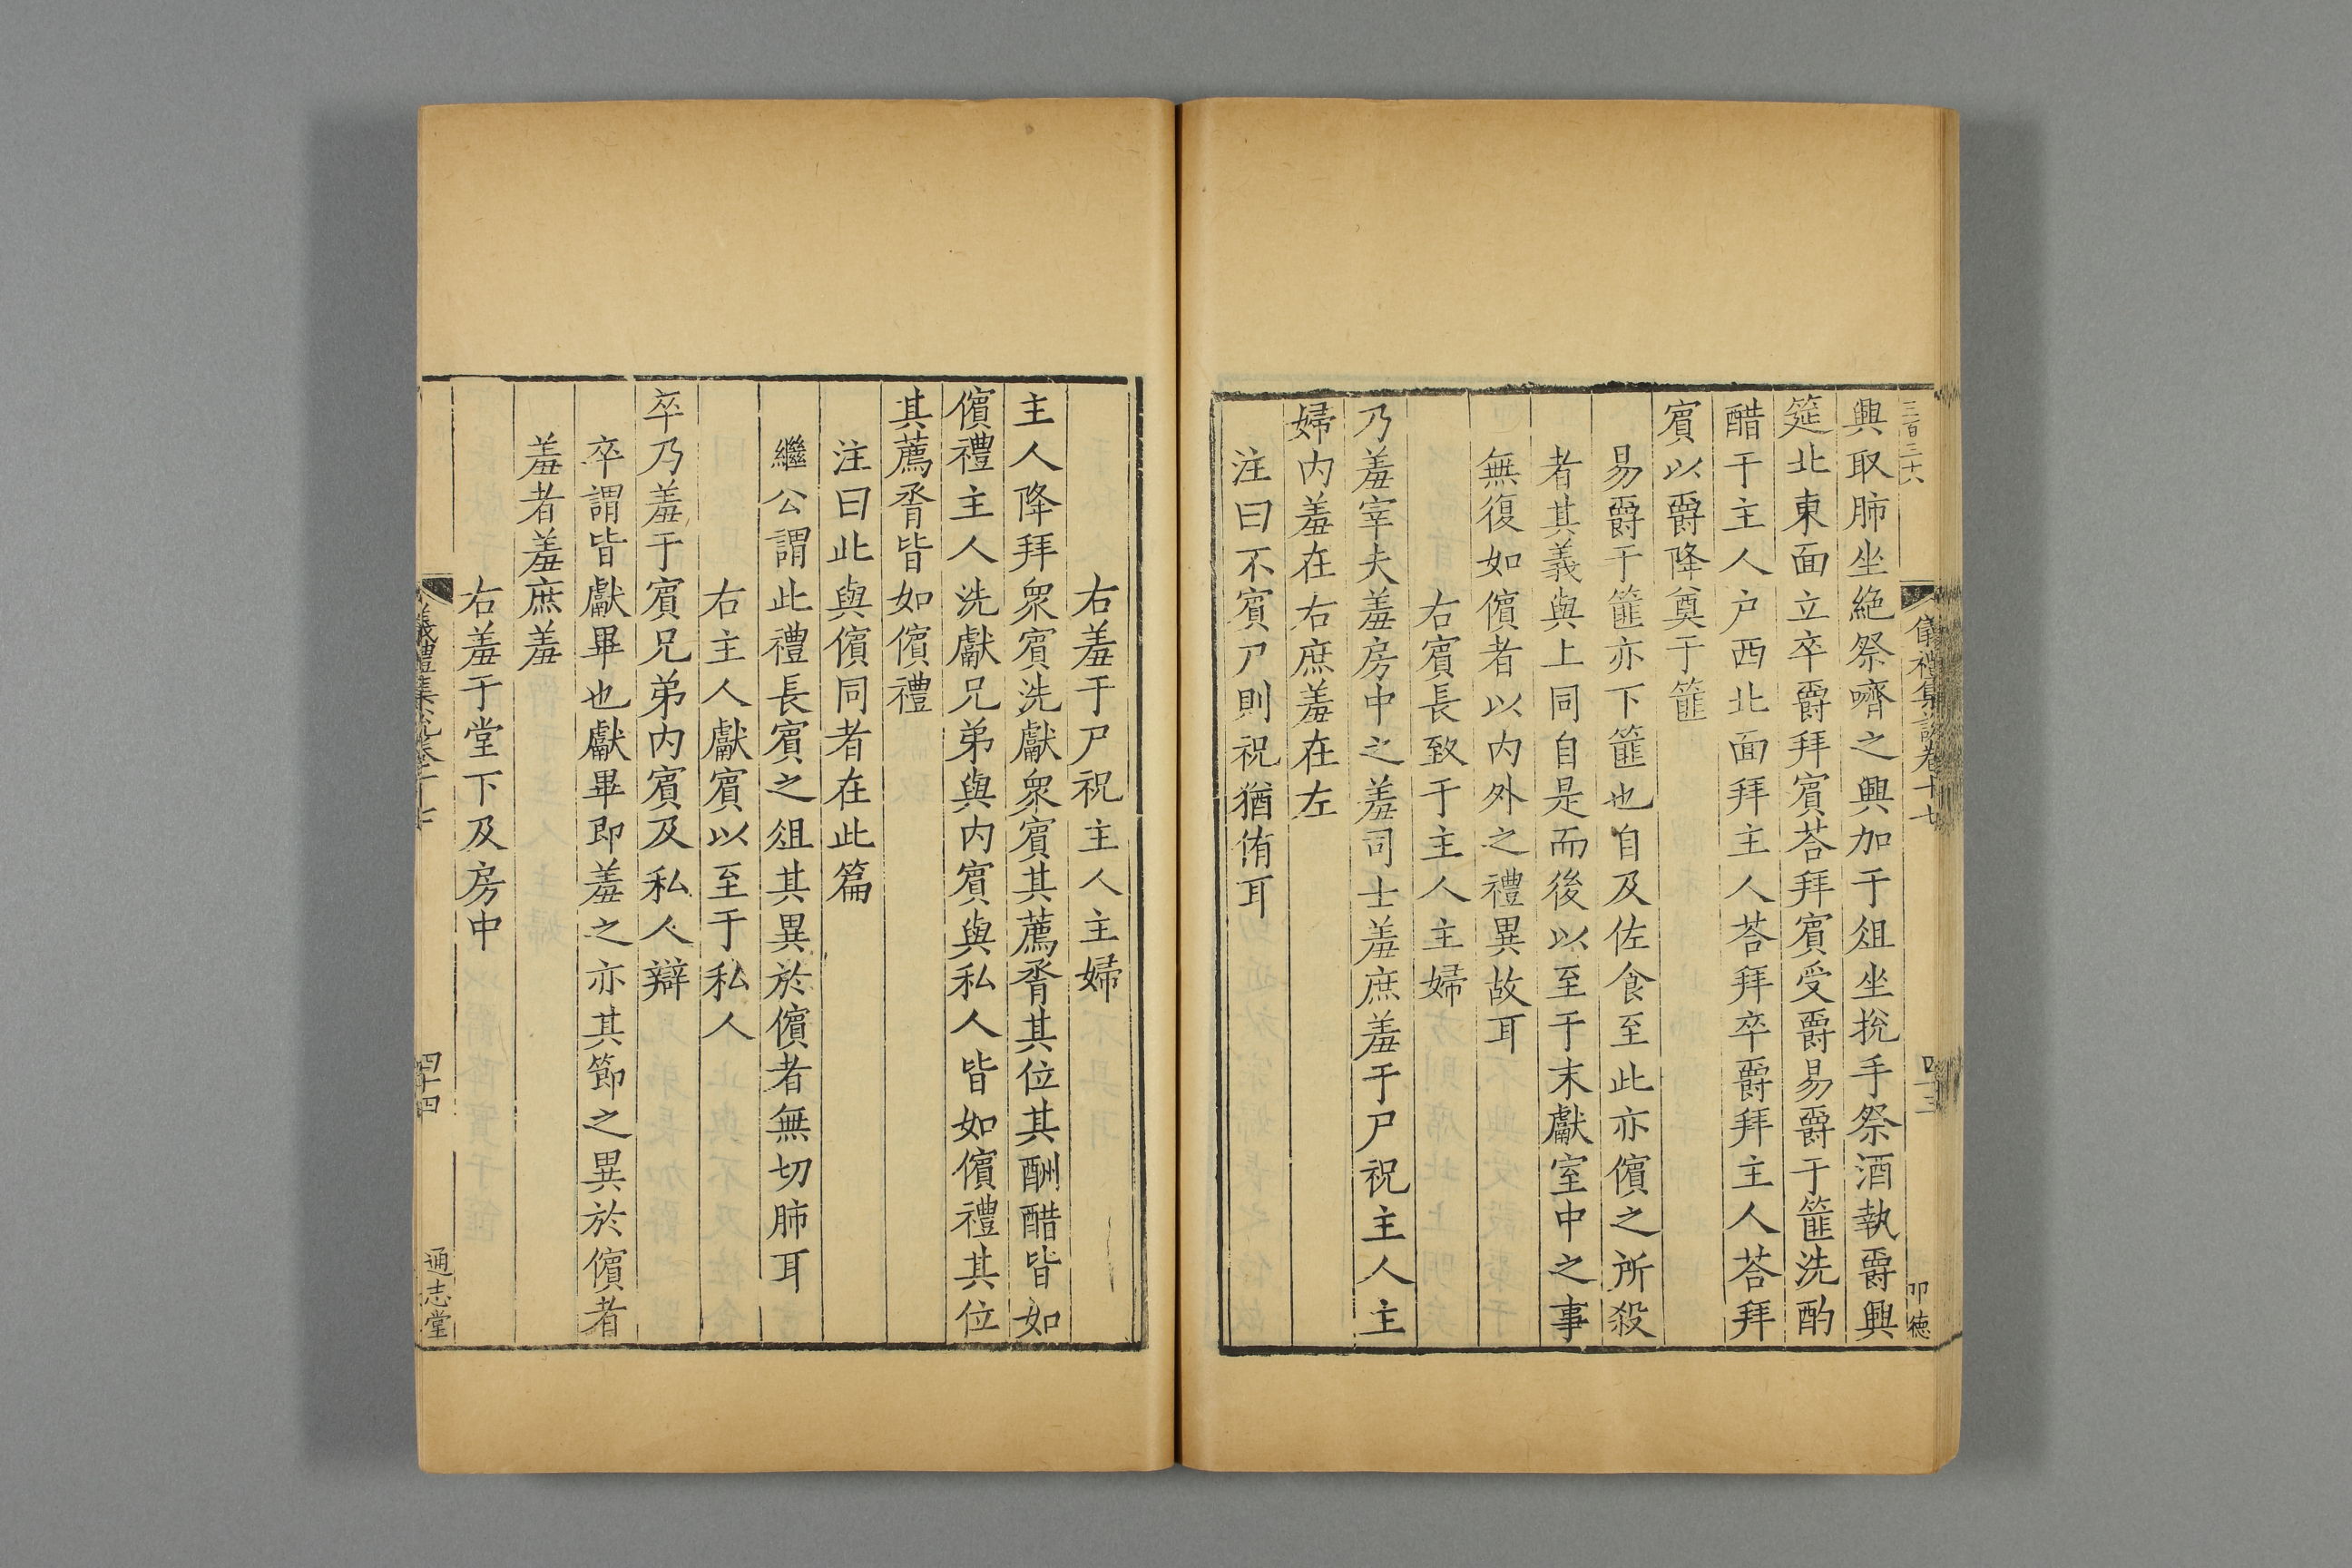 三百三十六
儀禮集說卷十七
四十三
卬德
興取肺坐絶祭嚌之興加于俎坐挩手祭酒執爵興
筵北東面立卒爵拜賓荅拜賓受爵易爵于篚洗酌
醋于主人户西北面拜主人荅拜卒爵拜主人荅拜
賓以爵降奠于篚
易爵于篚亦下篚也自及佐食至此亦儐之所殺
者其義與上同自是而後以至于末獻室中之事
無復如儐者以内外之禮異故耳
右賓長致于主人主婦
乃羞宰夫羞房中之羞司士羞庶羞于尸祝主人主
婦内羞在右庶羞在左
注曰不賓尸則祝猶侑耳
右羞于尸祝主人主婦
主人降拜衆賓洗獻衆賓其薦脀其位其酬醋皆如
儐禮主人洗獻兄弟與内賓與私人皆如儐禮其位
其薦脀皆如儐禮
注曰此與儐同者在此篇
繼公謂此禮長賓之俎其異於儐者無切肺耳
右主人獻賓以至于私人
卒乃羞于賓兄弟内賓及私人辯
卒謂皆獻畢也獻畢即羞之亦其節之異於儐者
羞者羞庶羞
右羞于堂下及房中
儀禮集說卷十七
四十四
通志堂